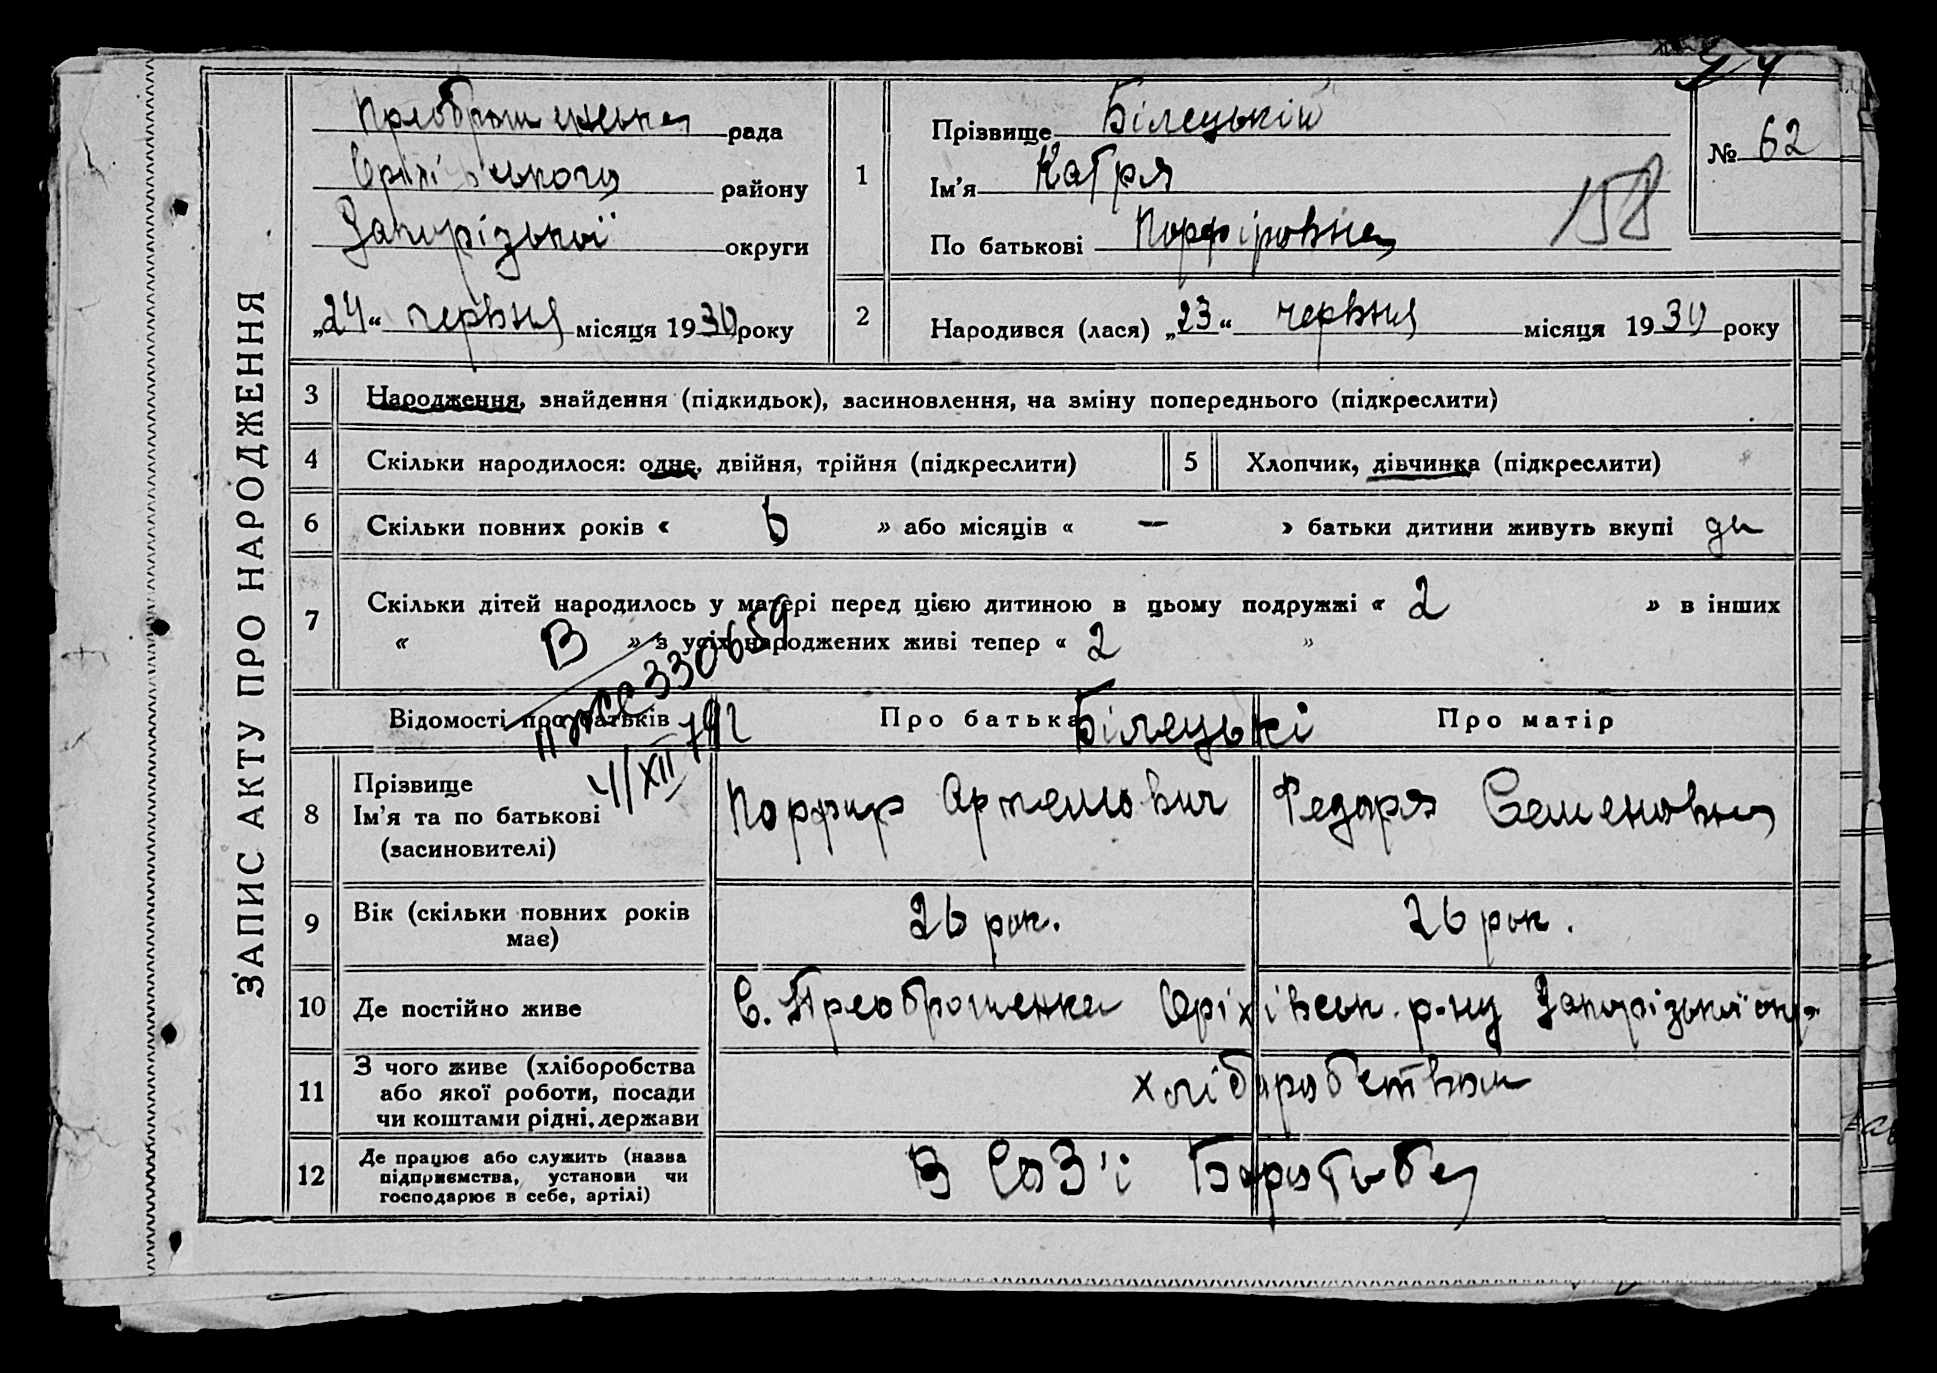 ЗАПИС АКТУ ПРО НАРОДЖЕННЯ
Преображенська рада
Оріхівського району
Запорізької округи
„24“ червня місяця 1930 року
1
Прізвище Білецькій
Ім'я Катря
По батькові Порфіровна
№ 62
158
2
Народився (лася) „23“ червня місяця 1930 року
3 Народження, знайдення (підкидьок), засиновлення, на зміну попереднього (підкреслити)
4 Скільки народилося: одне, двійня, трійня (підкреслити)
5 Хлопчик, дівчинка (підкреслити)
6 Скільки повних років « 6 » або місяців « — » батьки дитини живуть вкупі да
7 Скільки дітей народилось у матері перед цією дитиною в цьому подружжі « 2 » в інших
« » з усіх народжених живі тепер « 2 »
В
330659
4/XII
Відомості про батьків Про батька Про матір
Білецькі
8 Прізвище
Ім'я та по батькові
(засиновителі)
Порфир Артемович Федоря Семеновна
9 Вік (скільки повних років
має)
26 рок. 26 рок.
10 Де постійно живе С. Преображенка Оріхівськ. р-ну Запорізької окр.
11 З чого живе (хліборобства
або якої роботи, посади
чи коштами рідні, держави
хліборобством
12 Де працює або служить (назва
підприємства, установи чи
господарює в себе, артілі)
В СОЗ'і Боротьба